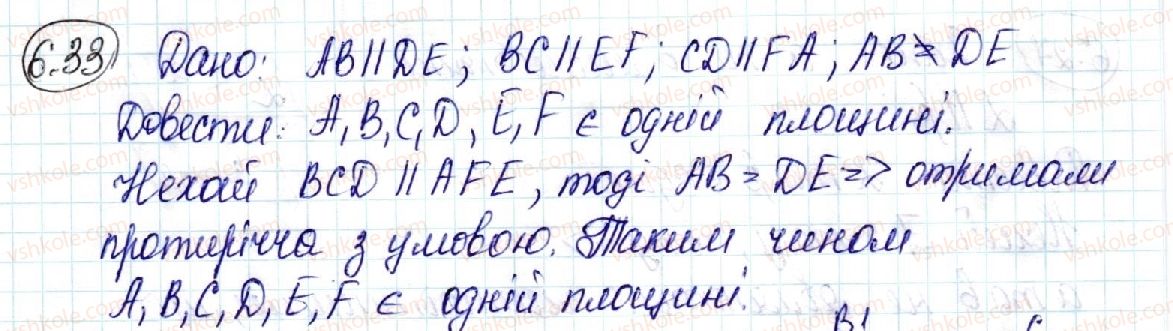 6.33 Дано: AB||DE; BC||EF; CD||FA; AB≠DE
Довести: A,B,C,D,E,F є одній площині.
Нехай BCD||AFE, тоді AB=DE=> отримали
протиріччя з умовою. Таким чином
A,B,C,D,E,F є одній площині.
B1 C